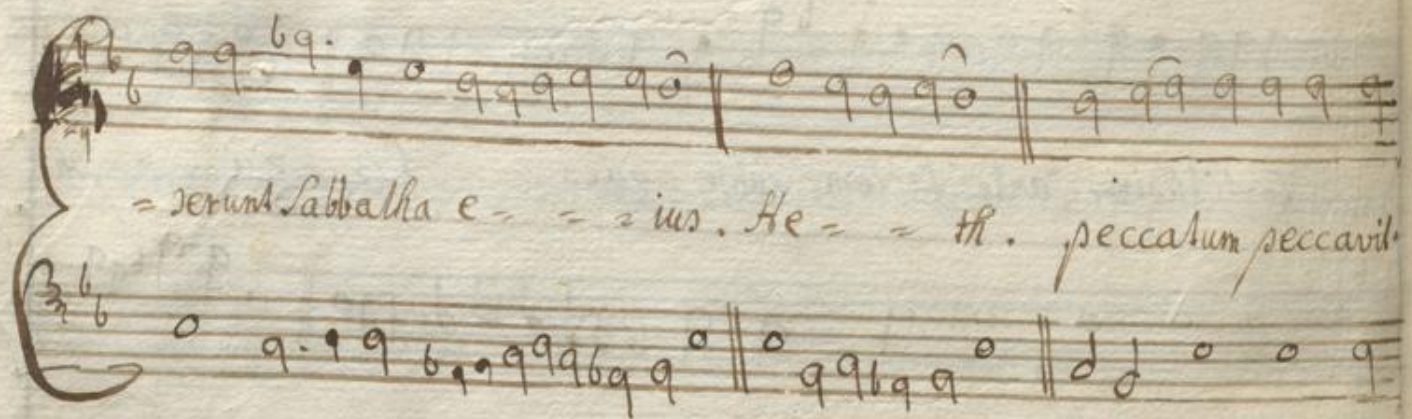 = serunt Sabbatha e - - - ius. He - - th. peccatum peccavit